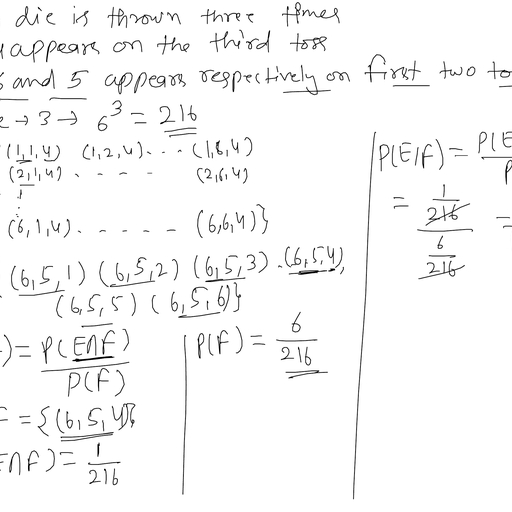 die is thrown three times
4 appears on the third toss
6 and 5 appears respectively on first two to
e → 3 → 6³ = 216
(1,1,4) (1,2,4) . . . (1,6,4)
(2,1,4) . . . . . (2,6,4)
(6,1,4) . - - - - . (6,6,4)}
(6,5,1) (6,5,2) (6,5,3) . (6,5,4),
(6,5,5) (6,5,6)}
) = P(E∩F) / P(F)
F = {(6,5,4)}
E∩F) = 1/216
P(F) = 6/216
P(E/F) = P(E / P
= 1/216 / 6/216 =